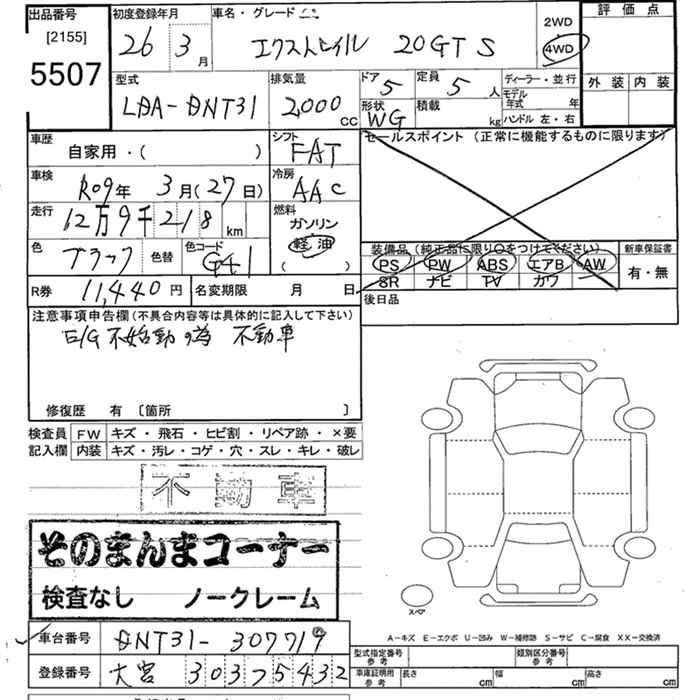 出品番号
[2155]
5507
初度登録年月
26 3月
車名・グレード
エクストレイル 20GT S
2WD
4WD
評価点
外装 内装
型式
LDA-DNT31
排気量
2,000 CC
ドア 5
形状 WG
定員 5 人
積載 kg
ディーラー・並行
モデル年式 年
ハンドル 左・右
車歴
自家用・( )
シフト
FAT
セールスポイント (正常に機能するものに限ります)
車検
R09年 3月(27日)
冷房
AAC
走行
12万9千218 km
燃料
ガソリン
軽油
( )
色 ブラック 色替
色コード G41
装備品 (純正品に限り○をつけてください)
PS PW ABS エアB AW
SR ナビ TV カワ
新車保証書
有・無
R券 11,440円
名変期限 月 日
後日品
注意事項申告欄(不具合内容等は具体的に記入して下さい)
E/G不始動の為 不動車
修復歴 有 [箇所 ]
検査員記入欄
FW キズ・飛石・ヒビ割・リペア跡・×要
内装 キズ・汚レ・コゲ・穴・スレ・キレ・破レ
不動車
そのまんまコーナー
検査なし ノークレーム
スペア
A-キズ E-エクボ U-凹み W-補修跡 S-サビ C-腐食 XX-交換済
車台番号 DNT31-307719
登録番号 大宮 303 そ 5432
型式指定番号 参考
類別区分番号 参考
車庫証明用 参考
長さ cm 幅 cm 高さ cm